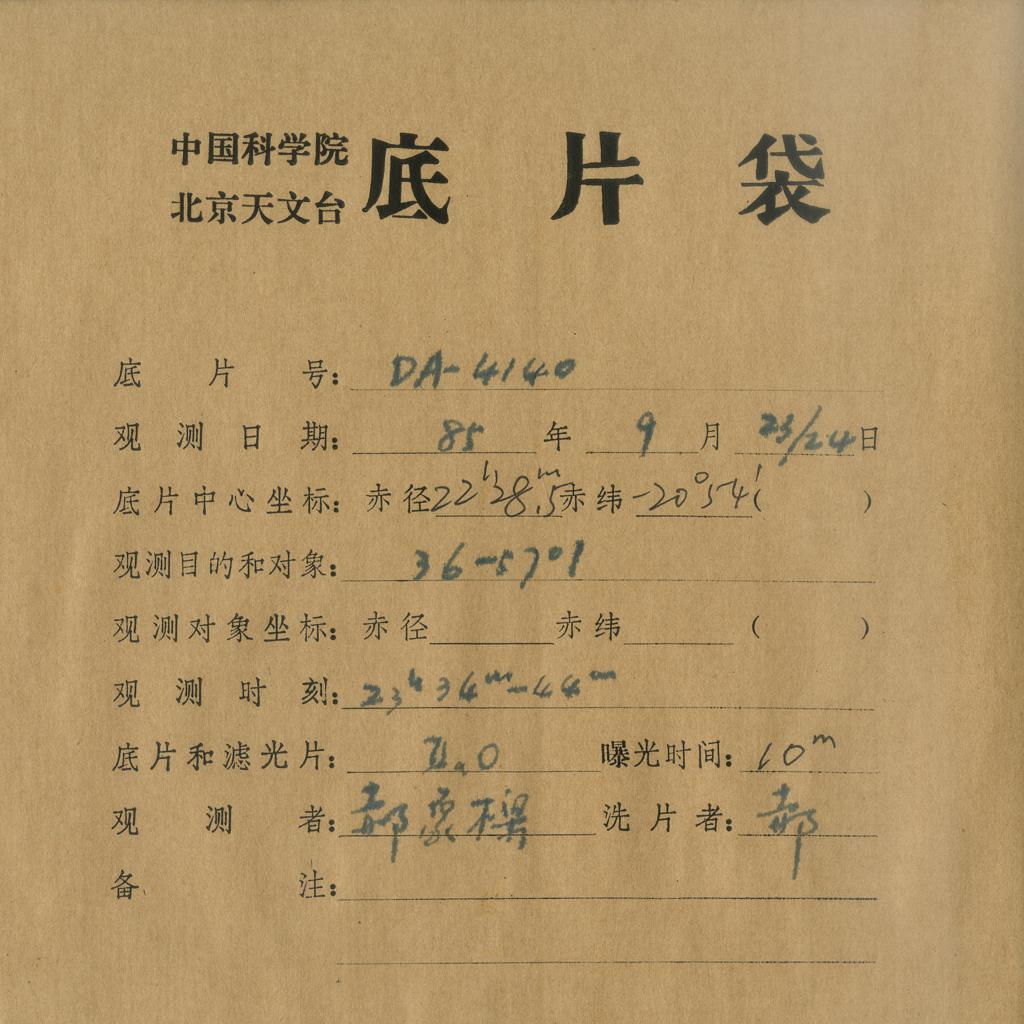 中国科学院
北京天文台
底片袋
底片号: DA-4140
观测日期: 85年 9月 23/24日
底片中心坐标: 赤径 22h28m.5 赤纬 -20°54′( )
观测目的和对象: 36-5701
观测对象坐标: 赤径 赤纬 ( )
观测时刻: 23h34m-44m
底片和滤光片: IIaO 曝光时间: 10m
观测者: 郝象樑 洗片者: 郝
备注: